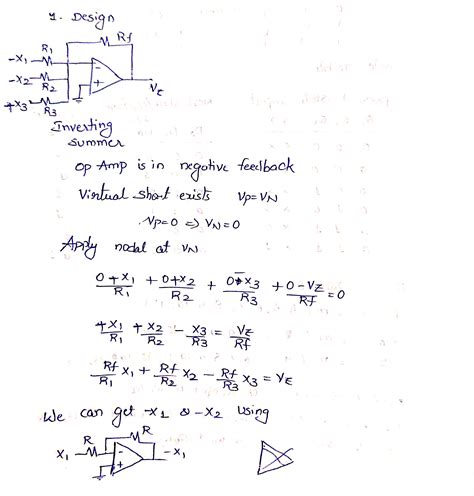 1. Design
Rf
-X1 R1
-X2 R2
+X3 R3
- +
VE
Inverting
Summer
Op Amp is in negative feedback
Virtual short exists VP=VN
VP=0 => VN=0
Apply nodal at VN
0+X1/R1 + 0+X2/R2 + 0-X3/R3 + 0-VE/Rf =0
+X1/R1 + X2/R2 - X3/R3 = VE/Rf
Rf/R1 X1 + Rf/R2 X2 - Rf/R3 X3 = VE
We can get -X1 & -X2 using
R
X1 R - + -X1